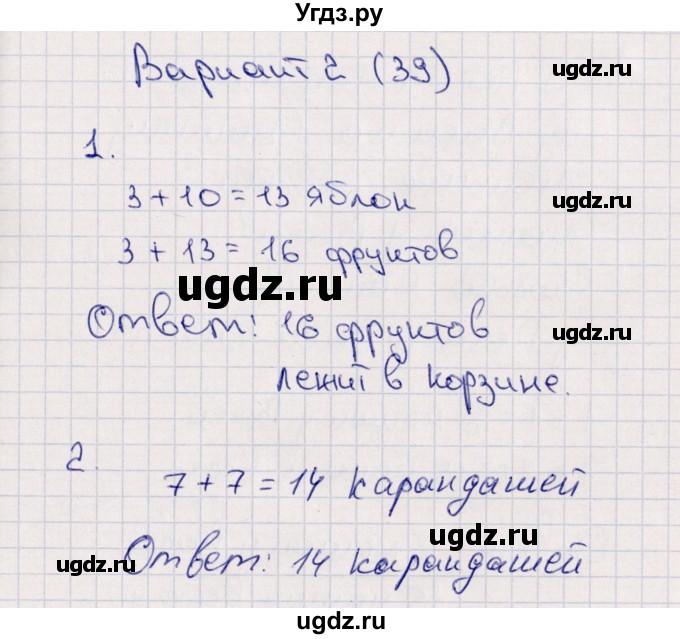 Угдз.ру
Вариант 2 (39)
ugdz.ru
1.
3 + 10 = 13 яблок
ugdz.ru
3 + 13 = 16 фруктов
ugdz.ru
Ответ: 16 фруктов
ugdz.ru
лежит в корзине.
2.
7 + 7 = 14 карандашей
ugdz.ru
ugdz.ru
Ответ: 14 карандашей
ugdz.ru